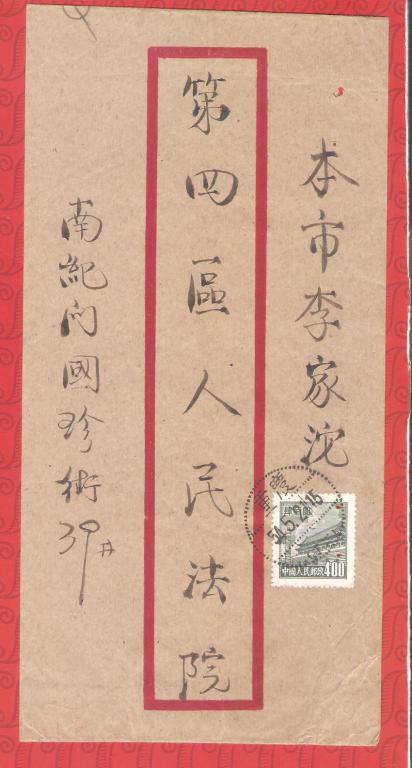 本市李家沱
第四區人民法院
南紀门國珍街
39
中國人民郵政
400
重慶
54.5.2
15